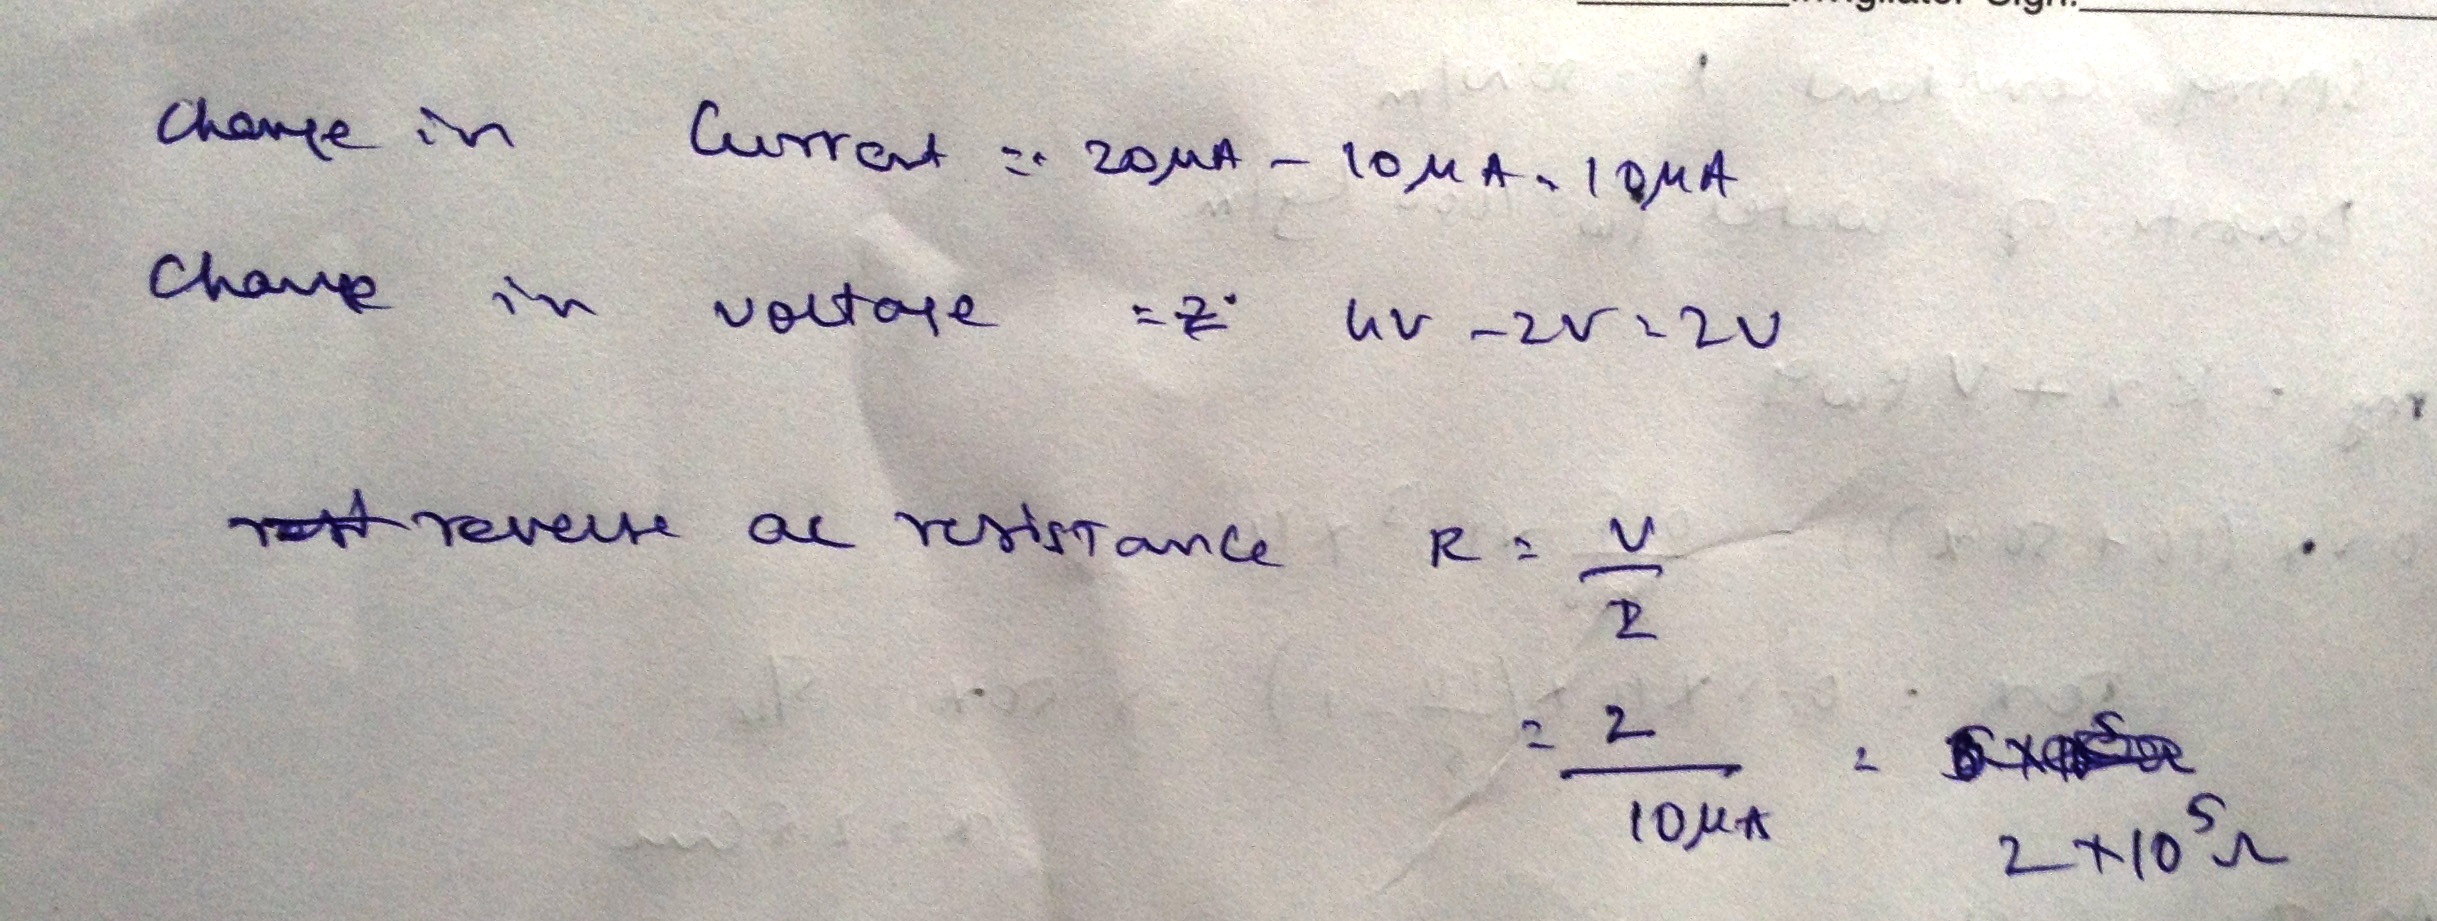 Invigilator Sign.
Change in Current = 20μA - 10μA = 10μA
Change in voltage = 4V - 2V = 2V
reverse ac resistance R = V
I
= 2
10μA
=
2 × 10⁵Ω